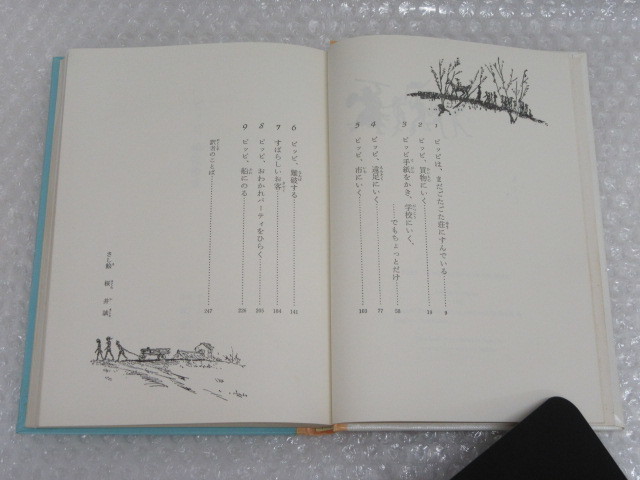 1 ピッピは、まだごたごた荘にすんでいる…………9
2 ピッピ、買物にいく…………16
3 ピッピ手紙をかき、学校にいく、
……でもちょっとだけ…………53
4 ピッピ、遠足にいく…………77
5 ピッピ、市にいく…………103
6 ピッピ、難破する…………141
7 すばらしいお客…………184
8 ピッピ、おわかれパーティをひらく…………205
9 ピッピ、船にのる…………230
訳者のことば…………247
さし絵 桜井誠